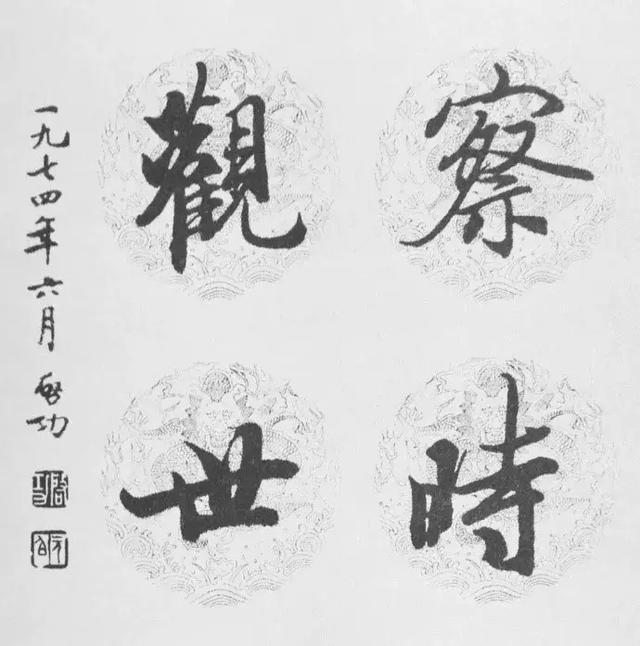 察時
觀世
一九七四年六月 啟功